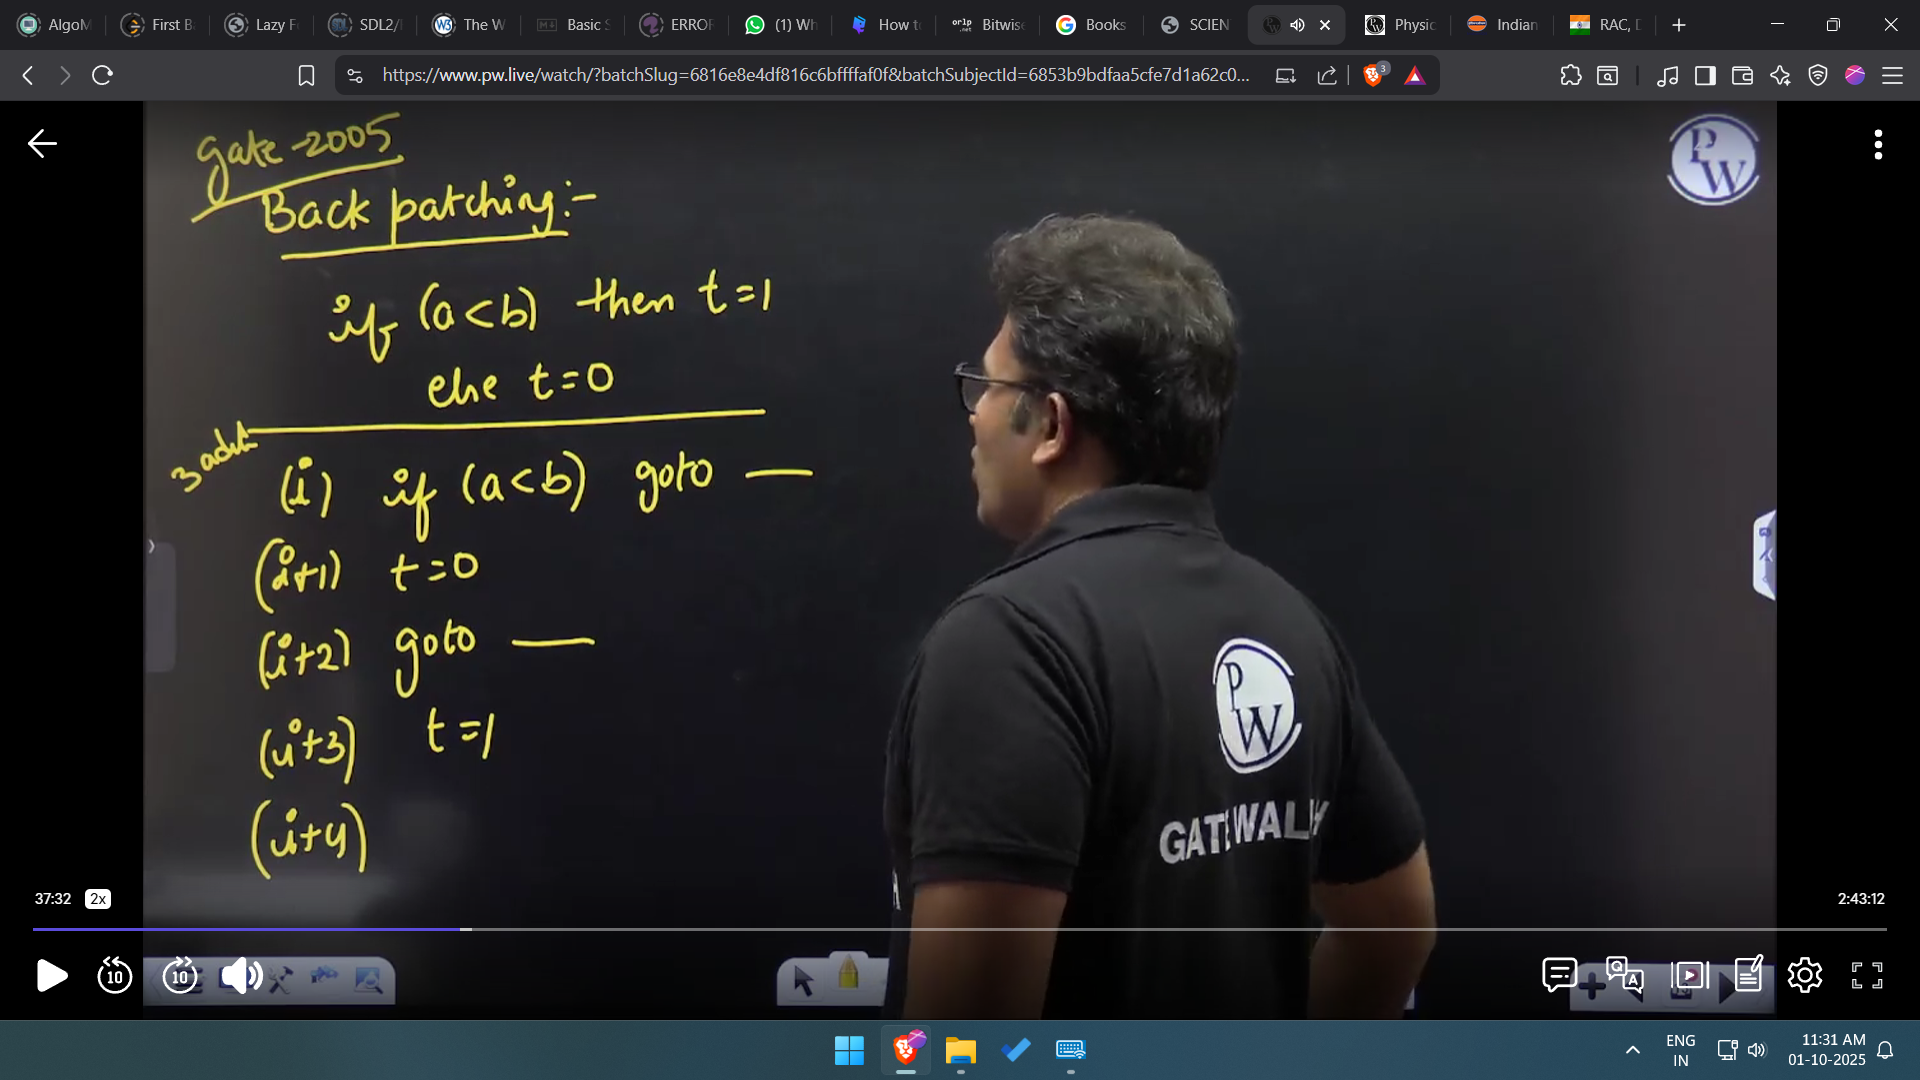 AlgoM
First B
Lazy F
SDL2/
The W
Basic S
ERROR
(1) Wh
How t
orlp .net
Bitwis
Books
SCIEN
Physic
Indian
RAC, D
https://www.pw.live/watch/?batchSlug=6816e8e4df816c6bffffaf0f&batchSubjectId=6853b9bdfaa5cfe7d1a62c0...
3
Gate-2005
PW
Back patching:-
if (a<b) then t=1
else t=0
3 add
(i) if (a<b) goto —
(i+1) t=0
(i+2) goto —
(i+3) t=1
(i+4)
PW
GATE WALLAH
37:32 2x
2:43:12
10
10
Q A
ENG
IN
11:31 AM
01-10-2025